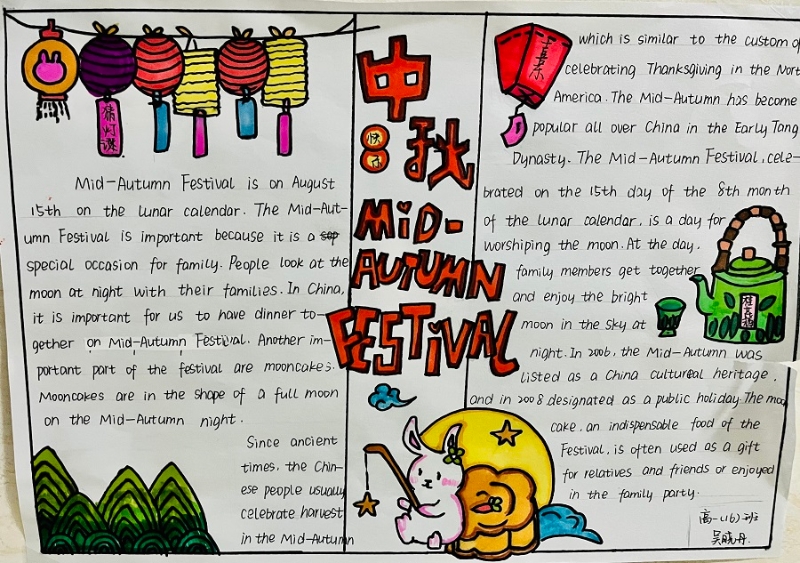 猜灯谜
Mid-Autumn Festival is on August
15th on the lunar calendar. The Mid-Aut-
umn Festival is important because it is a
special occasion for family. People look at the
moon at night with their families. In China,
it is important for us to have dinner to-
gether on Mid-Autumn Festival. Another im-
portant part of the festival are mooncakes.
Mooncakes are in the shape of a full moon
on the Mid-Autumn night.
Since ancient
times, the Chin-
ese people usually
celebrate harvest
in the Mid-Autumn
中
秋
MiD-
AUTUMN
FESTiVAL
which is similar to the custom of
celebrating Thanksgiving in the Nort
America. The Mid-Autumn has become
popular all over China in the Early Tang
Dynasty. The Mid-Autumn Festival, cele-
brated on the 15th day of the 8th month
of the lunar calendar, is a day for
worshiping the moon. At the day,
family members get together
and enjoy the bright
moon in the sky at
night. In 2006, the Mid-Autumn was
listed as a China cultureal heritage,
and in 2008 designated as a public holiday. The moon
cake, an indispensable food of the
Festival, is often used as a gift
for relatives and friends or enjoyed
in the family party.
高一(16)班
吴晓丹